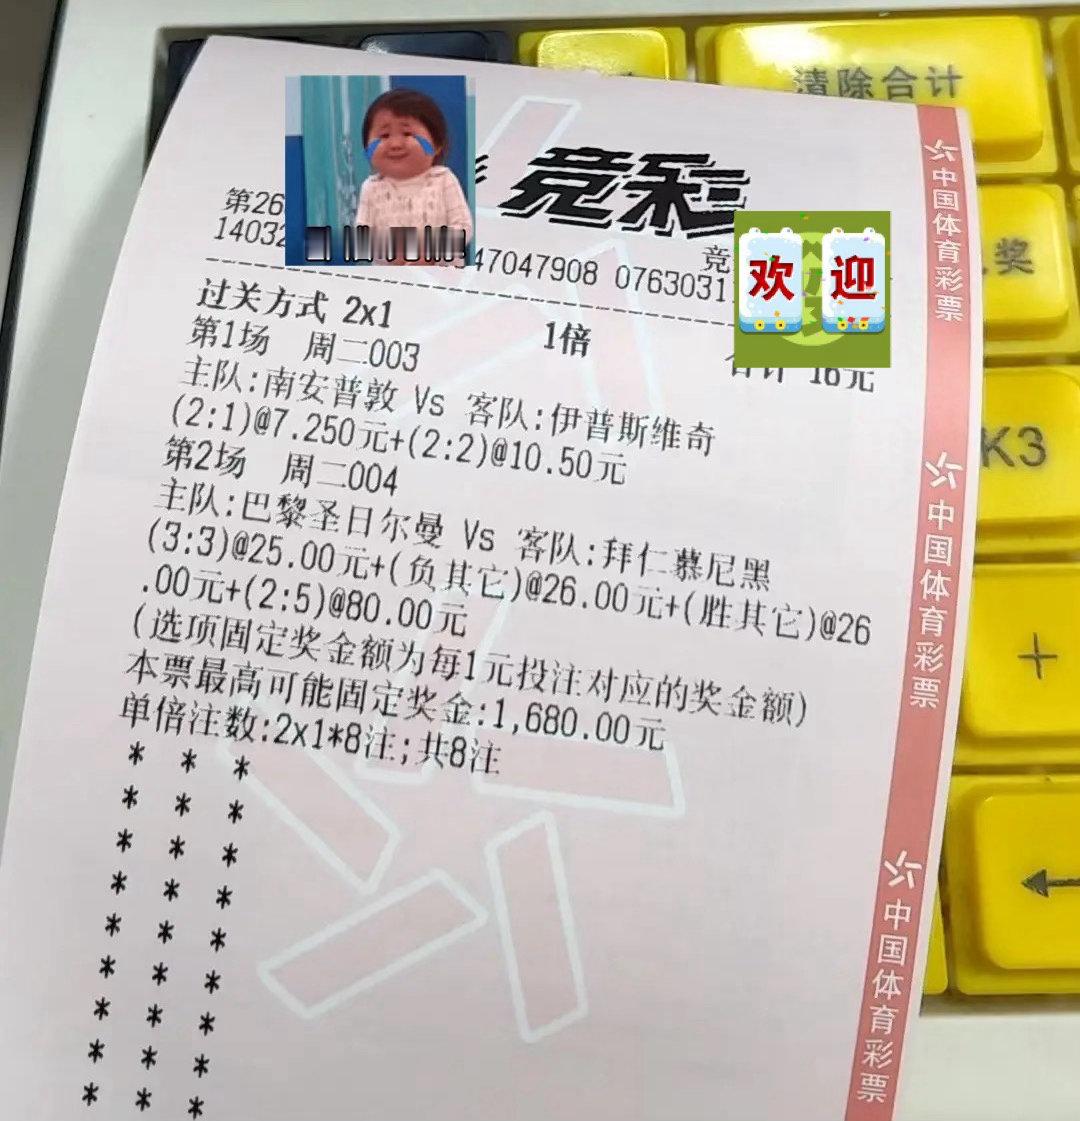 清除合计
竞彩
欢迎
第26
14032 47047908 0763031
竞
过关方式 2x1 1倍 合计 16元
第1场 周二003
主队:南安普敦 Vs 客队:伊普斯维奇
(2:1)@7.250元+(2:2)@10.50元
第2场 周二004
主队:巴黎圣日尔曼 Vs 客队:拜仁慕尼黑
(3:3)@25.00元+(负其它)@26.00元+(胜其它)@26
.00元+(2:5)@80.00元
(选项固定奖金额为每1元投注对应的奖金额)
本票最高可能固定奖金:1,680.00元
单倍注数:2x1*8注;共8注
* * *
* * *
* * *
* * *
* * *
* * *
* * *
* * *
* * *
中国体育彩票
中国体育彩票
中国体育彩票
奖
K3
+
←